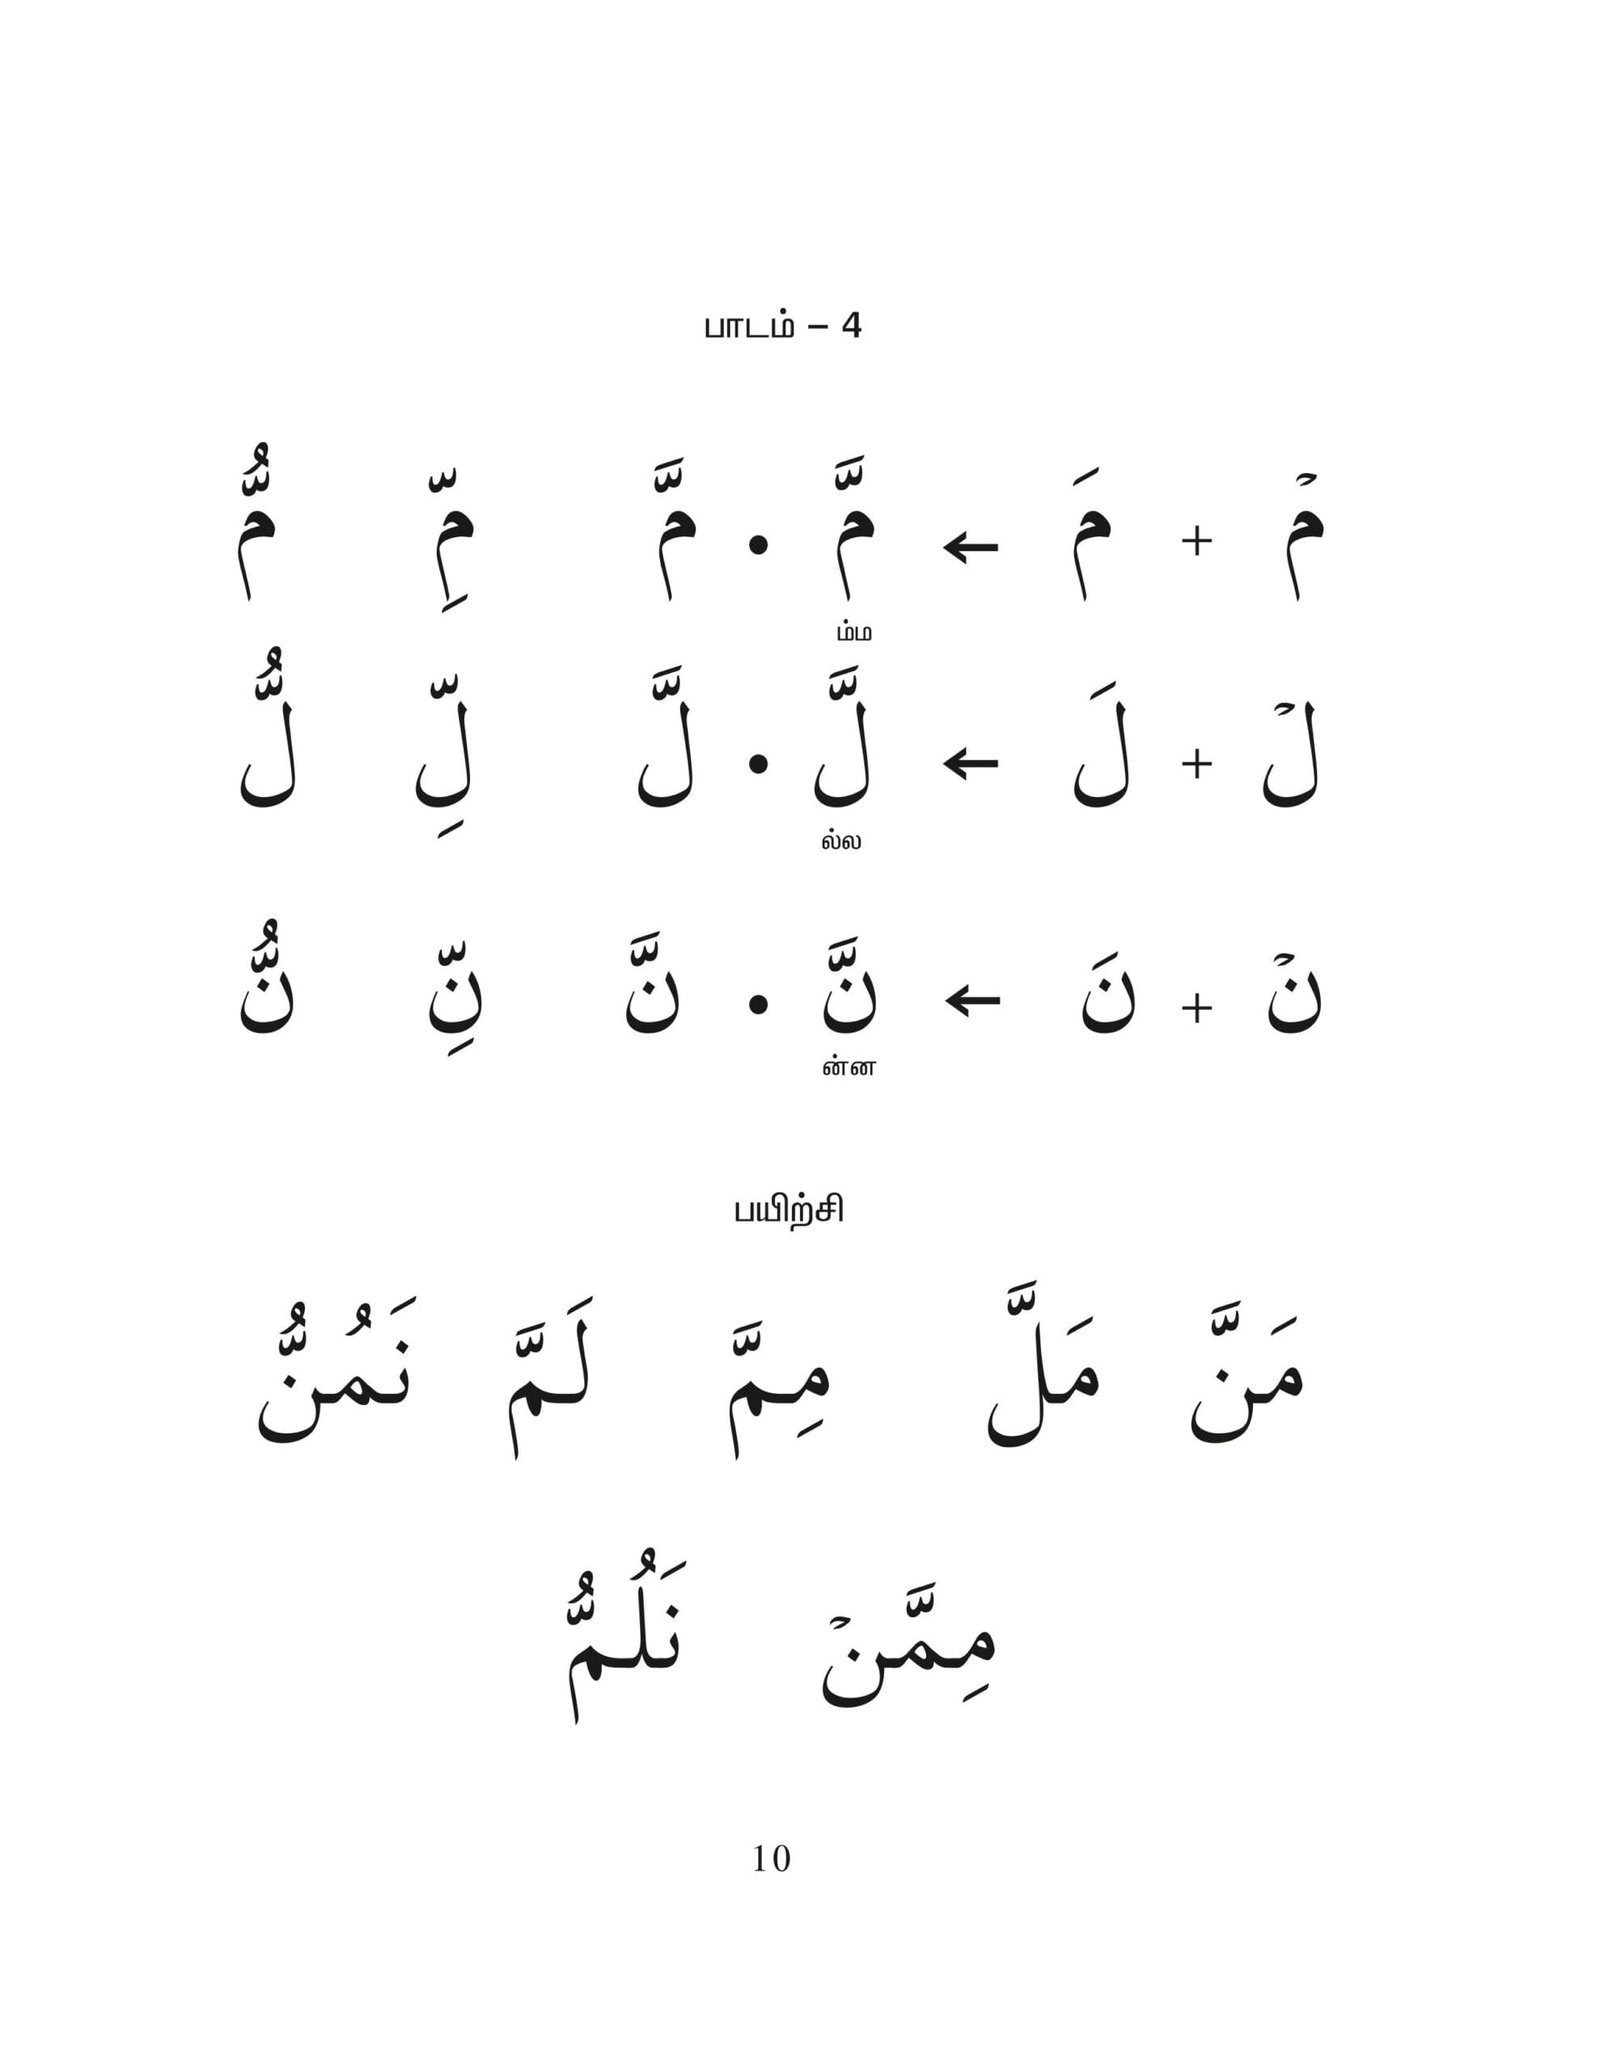 பாடம் – 4
مۡ + مَ ← مَّ • مَّ مِّ مُّ
ம்ம
لۡ + لَ ← لَّ • لَّ لِّ لُّ
ல்ல
نۡ + نَ ← نَّ • نَّ نِّ نُّ
ன்ன
பயிற்சி
مَنَّ مَلَّ مِمَّ لَمَّ نَمُنُّ
مِمَّنۡ نَلُمُّ
10